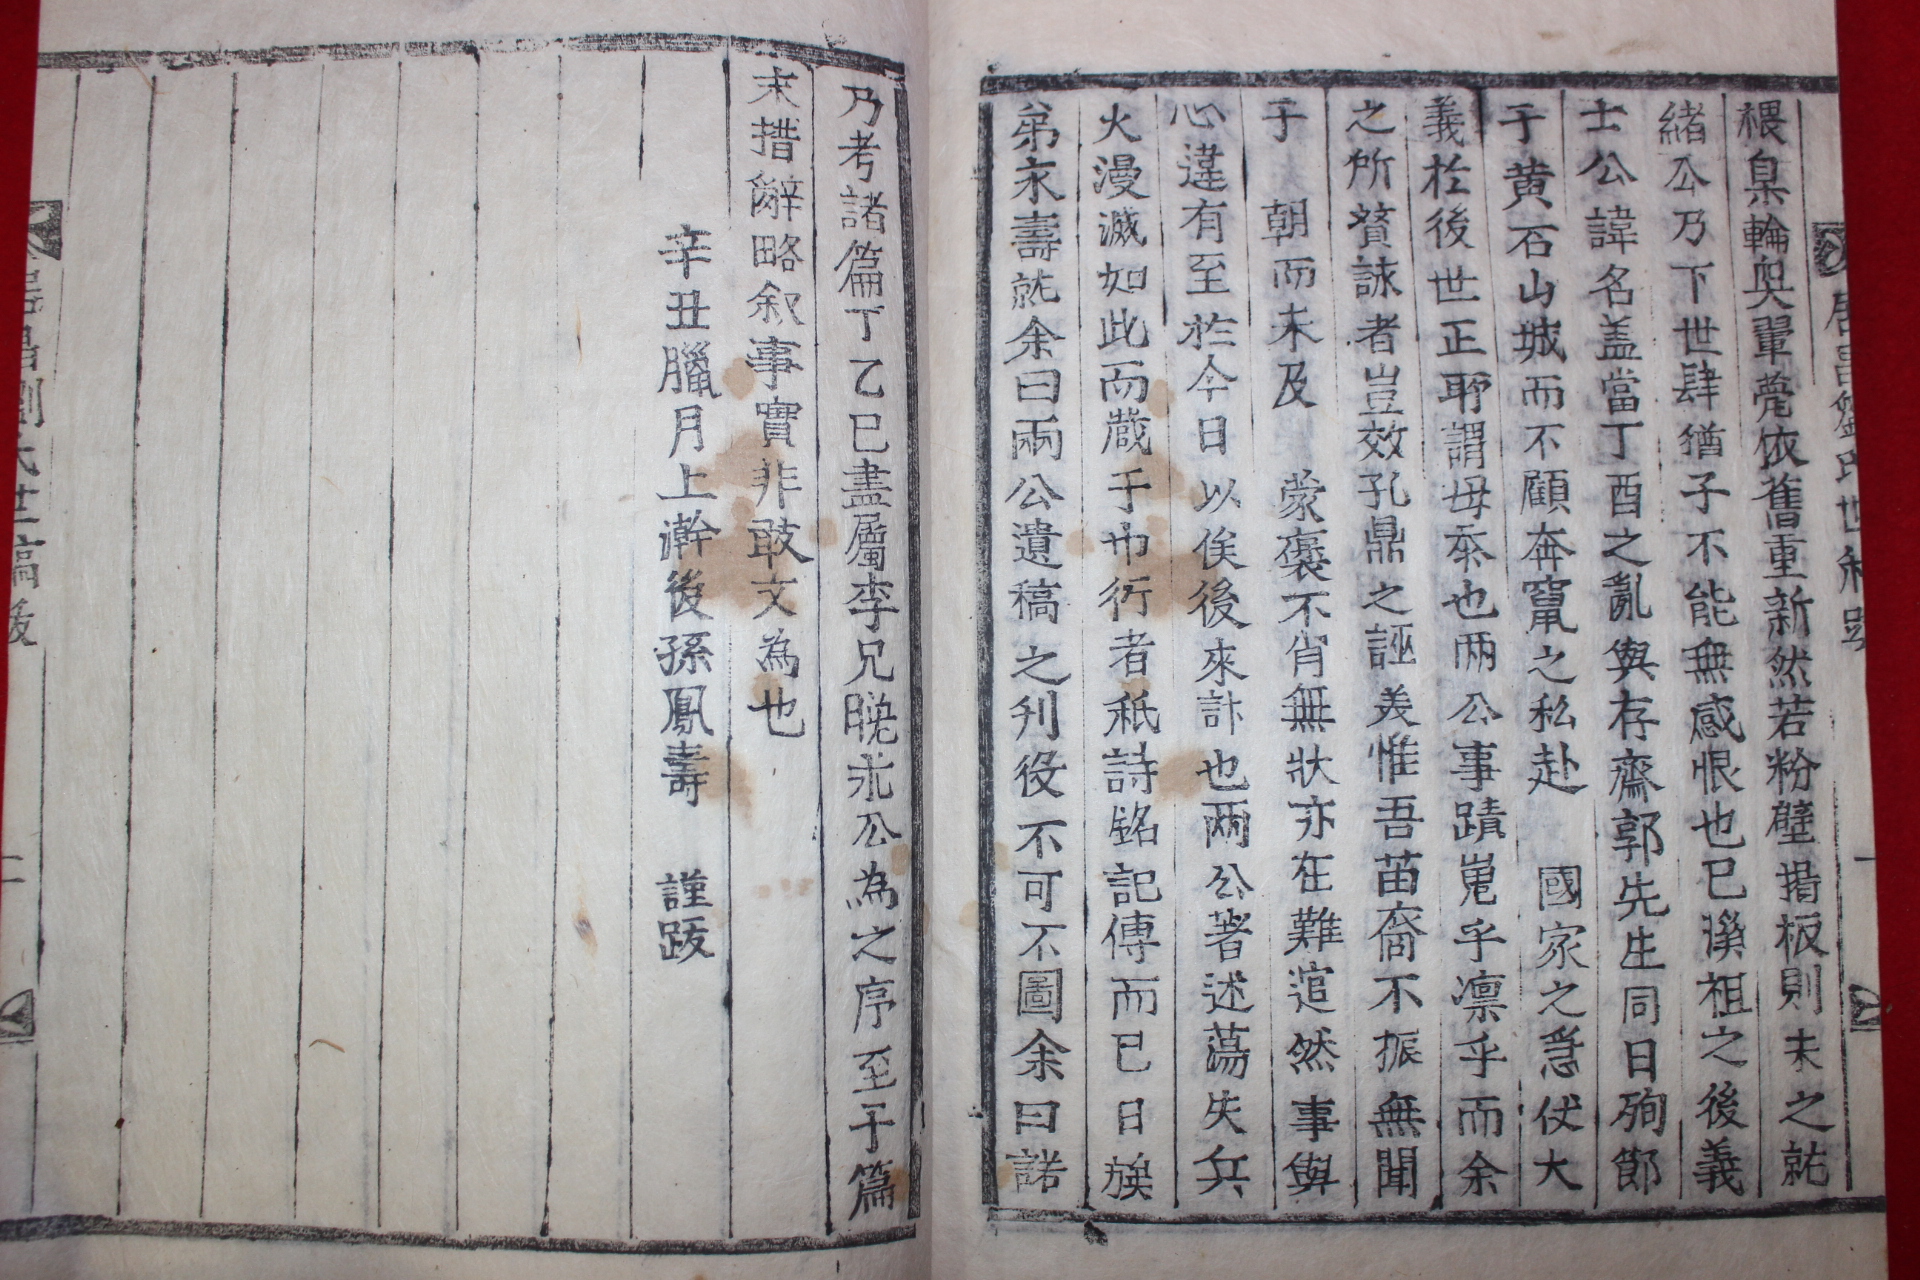 椳臬輪奐翬甍依舊重新然若粉壁措板則未之就
緖公乃下世肆猶子不能無感恨也已漢祖之後義
士公諱名盖當丁酉之亂與存齋郭先生同日殉節
于黄石山城而不顧奔竄之私赴 國家之急伏大
義於後世正耶謂毋忝也兩公事蹟嵬乎凛乎而余
之所贅詠者豈效孔鼎之誣美惟吾苗裔不振無聞
于 朝而未及 蒙褒不肖無狀亦在難逭然事與
心違有至於今日以俟後來計也兩公著述蕩失兵
火漫滅如此而蔵于巾衍者秖詩銘記傳而已日族
弟永壽就余曰兩公遺稿之刋役不可不圖余曰諾
乃考諸篇丁乙巳盡屬李兄晩 公為之序至于篇
末措辭略叙事實非敢文為也
辛丑臘月上澣後孫鳳壽 謹跋
居昌劉氏世稿跋
二